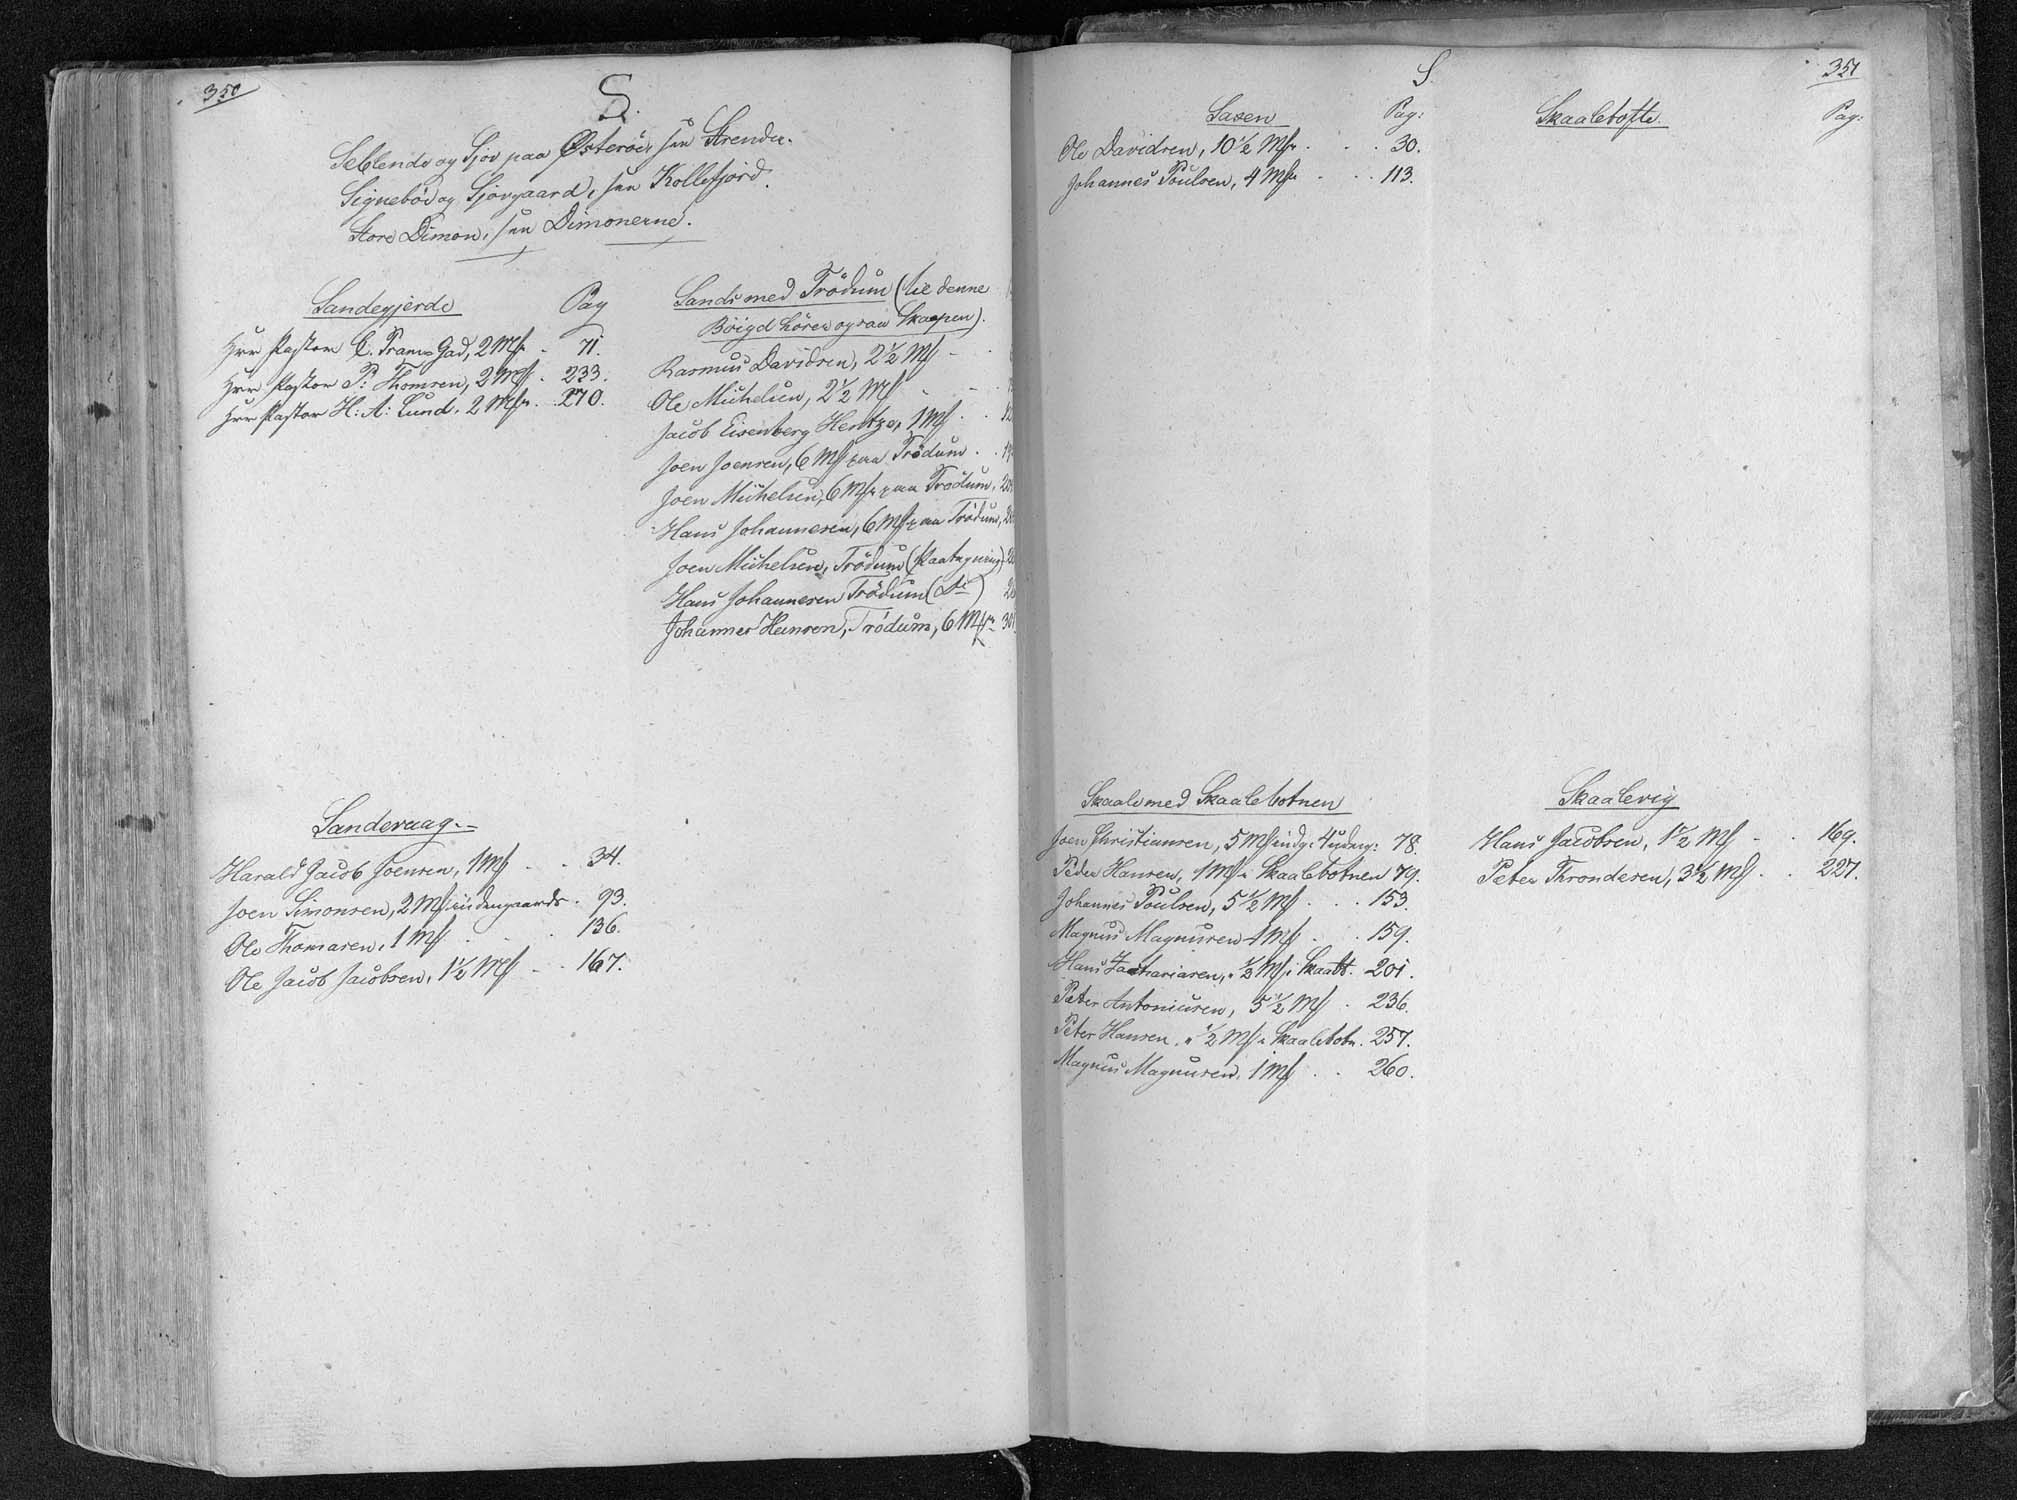 350
S.
Selletræ og Sjov paa Østeröe, see Strender.
Signebö og Sjovgaard, see Kollefjord.
Store Dimon, see Dimonerne.
Sandegjerde Pag
Herr Pastor C. Pram Gad, 2 Mk - 71.
Herr Pastor P: Thomsen, 2 Mk . 233.
Herr Pastor H: A: Lund, 2 Mk . 270.
Sands med Trödum (til denne
Böigd hörer ogsaa Skaapen).
Rasmus Davidsen, 2 1/2 Mk -
Ole Michelsen, 2 1/2 Mk - -
Jacob Eisenberg Hentze, 1 Mk . .
Joen Joensen, 6 Mk paa Trödum . .
Joen Michelsen, 6 Mk paa Trödum,
Hans Johannesen, 6 Mk paa Trödum,
Joen Michelsen, Trödum (Paategning)
Hans Johannesen Trödum (Do)
Johannes Hansen, Trödum, 6 Mk
Sandevaag.
Harald Jacob Joensen, 1 Mk - . 34.
Joen Simonsen, 2 Mk indengaards . 93.
Ole Thomasen, 1 Mk . . 136.
Ole Jacob Jacobsen, 1 1/2 Mk - . 167.
S. 351
Saxen Pag:
Ole Davidsen, 10 1/2 Mk . . . 30.
Johannes Poulsen, 4 Mk . . . 113.
Skaaletofte. Pag:
Skaale med Skaalebotnen
Joen Christiansen, 5 Mk indg: 4 udeng: 78.
Peder Hansen, 1 Mk i Skaalebotnen 79.
Johannes Poulsen, 5 1/2 Mk . . . 153.
Magnus Magnusen 4 Mk . . 159.
Hans Zachariasen, 1/2 Mk i Skaalb. 201.
Peter Antoniusen, 5 1/2 Mk . 236.
Peter Hansen, 1/2 Mk i Skaalebotn. 257.
Magnus Magnusen, 1 Mk . . 260.
Skaalevig
Hans Jacobsen, 1 1/2 Mk - . 169.
Peter Throndesen, 3 1/2 Mk . . 227.